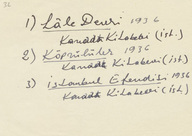 1) Lâle Devri 1936
Kanaat Kitabevi (ist.)
2) Köprülüler 1936
Kanaat Kitabevi (ist.)
3) istanbul Efendisi 1936
Kanaat Kitabevi (ist.)